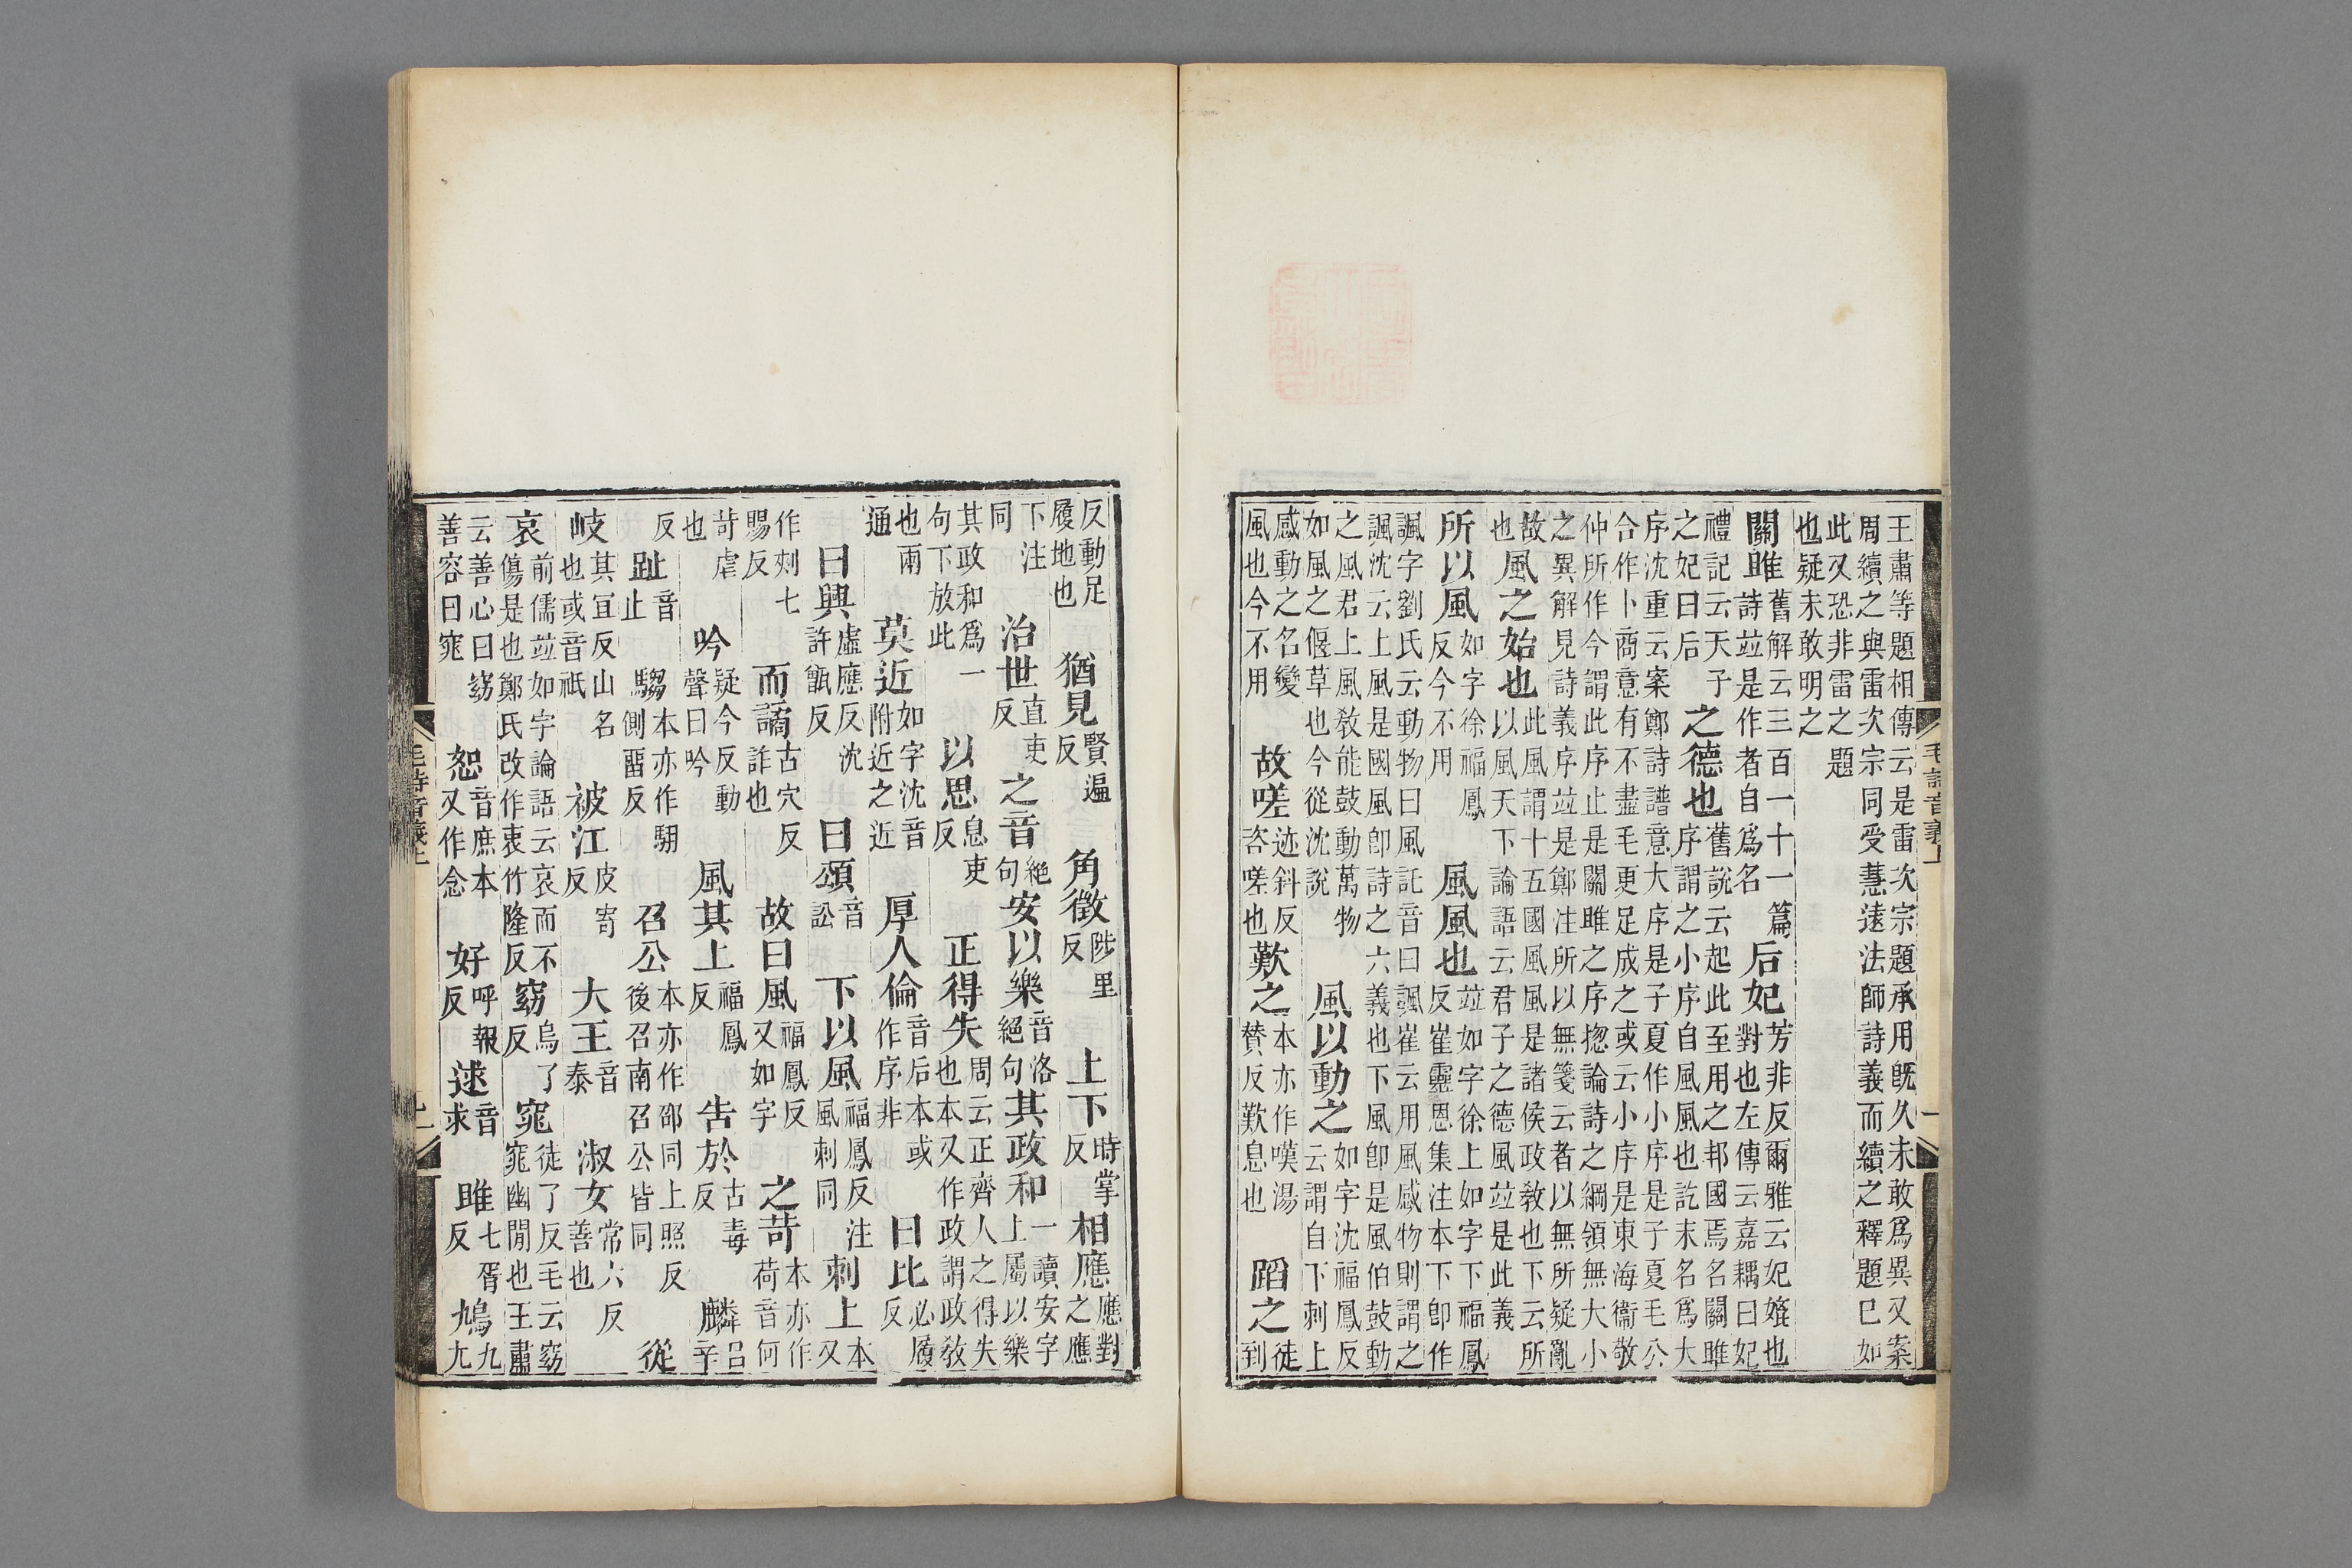 王肅等題相傳云是雷次宗題承用既久未敢爲異又案
周續之與雷次宗同受慧遠法師詩義而續之釋題已如
此又恐非雷之題
也疑未敢明之
關雎舊解云三百一十一篇詩並是作者自爲名后妃芳非反爾雅云妃媲也對也左傳云嘉耦曰妃
禮記云天子之妃曰后之德也舊說云起此至用之邦國焉名關雎序謂之小序自風風也訖末名爲大
序沈重云案鄭詩譜意大序是子夏作小序是子夏毛公
合作卜商意有不盡毛更足成之或云小序是東海衞敬
仲所作今謂此序止是關雎之序揔論詩之綱領無大小
之異解見詩義序並是鄭注所以無箋云者以無所疑亂
故也風之始也此風謂十五國風風是諸侯政教也下云所以風天下論語云君子之德風並是此義
所以風如字徐福鳳反今不用風風也並如字徐上如字下福鳳反崔靈恩集注本下卽作
諷字劉氏云動物曰風託音曰諷崔云用風感物則謂之
諷沈云上風是國風卽詩之六義也下風卽是風伯鼓動
之風君上風教能鼓動萬物如風之偃草也今從沈說風以動之如字沈福鳳反云謂自下刺上
感動之名變風也今不用故嗟迹斜反咨嗟也歎之本亦作嘆湯贊反歎息也蹈之徒到
毛詩音義上
反動足履地也猶見賢遍反角徵陟里反上下時掌反相應應對之應
下注同治世直吏反之音絕句安以樂音洛絕句其政和一讀安字上屬以樂
其政和爲一句下放此以思息吏反正得失周云正齊人之得失也本又作政謂政教
也兩通莫近如字沈音附近之近厚人倫音后本或作序非曰比必履反
曰興虛應反沈許甑反曰頌音訟下以風福鳳反注風刺同刺上本又
作刾七賜反而譎古穴反詐也故曰風福鳳反又如字之苛本亦作荷音何
苛虐也吟疑今反動聲曰吟風其上福鳳反告於古毒反麟呂辛
反趾音止騶本亦作騆側畱反召公本亦作邵同上照反後召南召公皆同從
岐其宜反山名也或音祇被江皮寄反大王音泰淑女常六反善也
哀前儒並如字論語云哀而不傷是也鄭氏改作衷竹隆反窈烏了反窕徒了反毛云窈窕幽閒也王肅
云善心曰窈善容曰窕恕音庶本又作念好呼報反逑音求雎七胥反鳩九尤
毛詩音義上